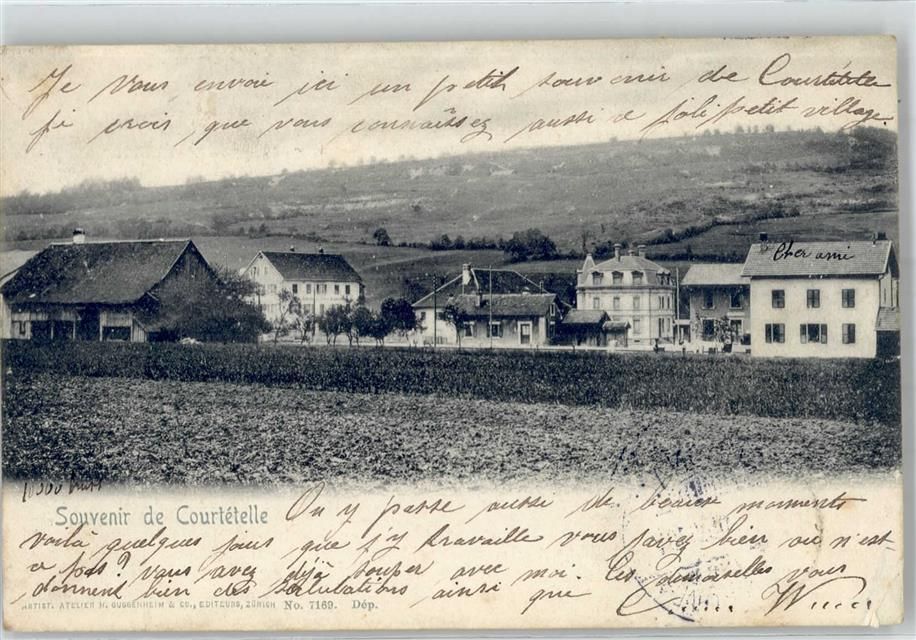 Je vous envoie ici un petit souvenir de Courtételle
je crois que vous connaissez aussi ce joli petit village
Cher ami
Souvenir de Courtételle
On y passe aussi de beaux moments
voilà quelques jours que j'y travaille vous savez bien où n'est
ce pas? vous avez déjà souper avec moi. Les demoiselles vous
donnent bien des salutations ainsi que
ARTIST. ATELIER H. GUGGENHEIM & CO., EDITEURS, ZÜRICH No. 7169. Dép.